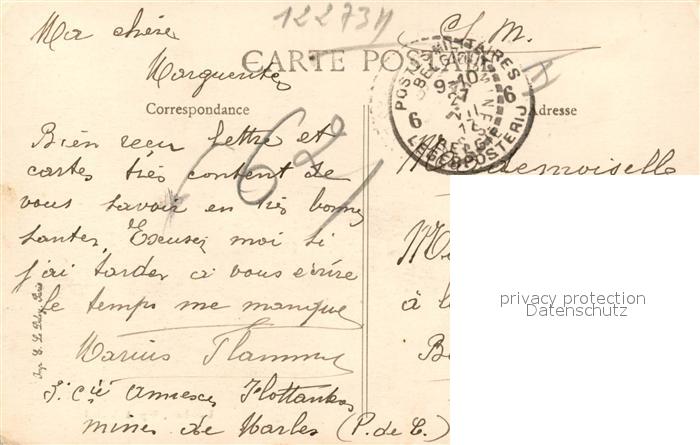 122734
Ma chère
S. M.
CARTE POSTALE
Marguerite
Correspondance
Adresse
POSTES MILITAIRES
BELGIQUE
9-10
6
6
BELGIE
LEGERPOSTERIJ
Bien reçu lettre et
cartes très content de
vous savoir en très bonne
santer, Excusez moi si
j'ai tarder a vous écrire
le temps me manque
Marius Flamme
Mademoiselle
à l
privacy protection
Datenschutz
mines de Marles (P. de C.)